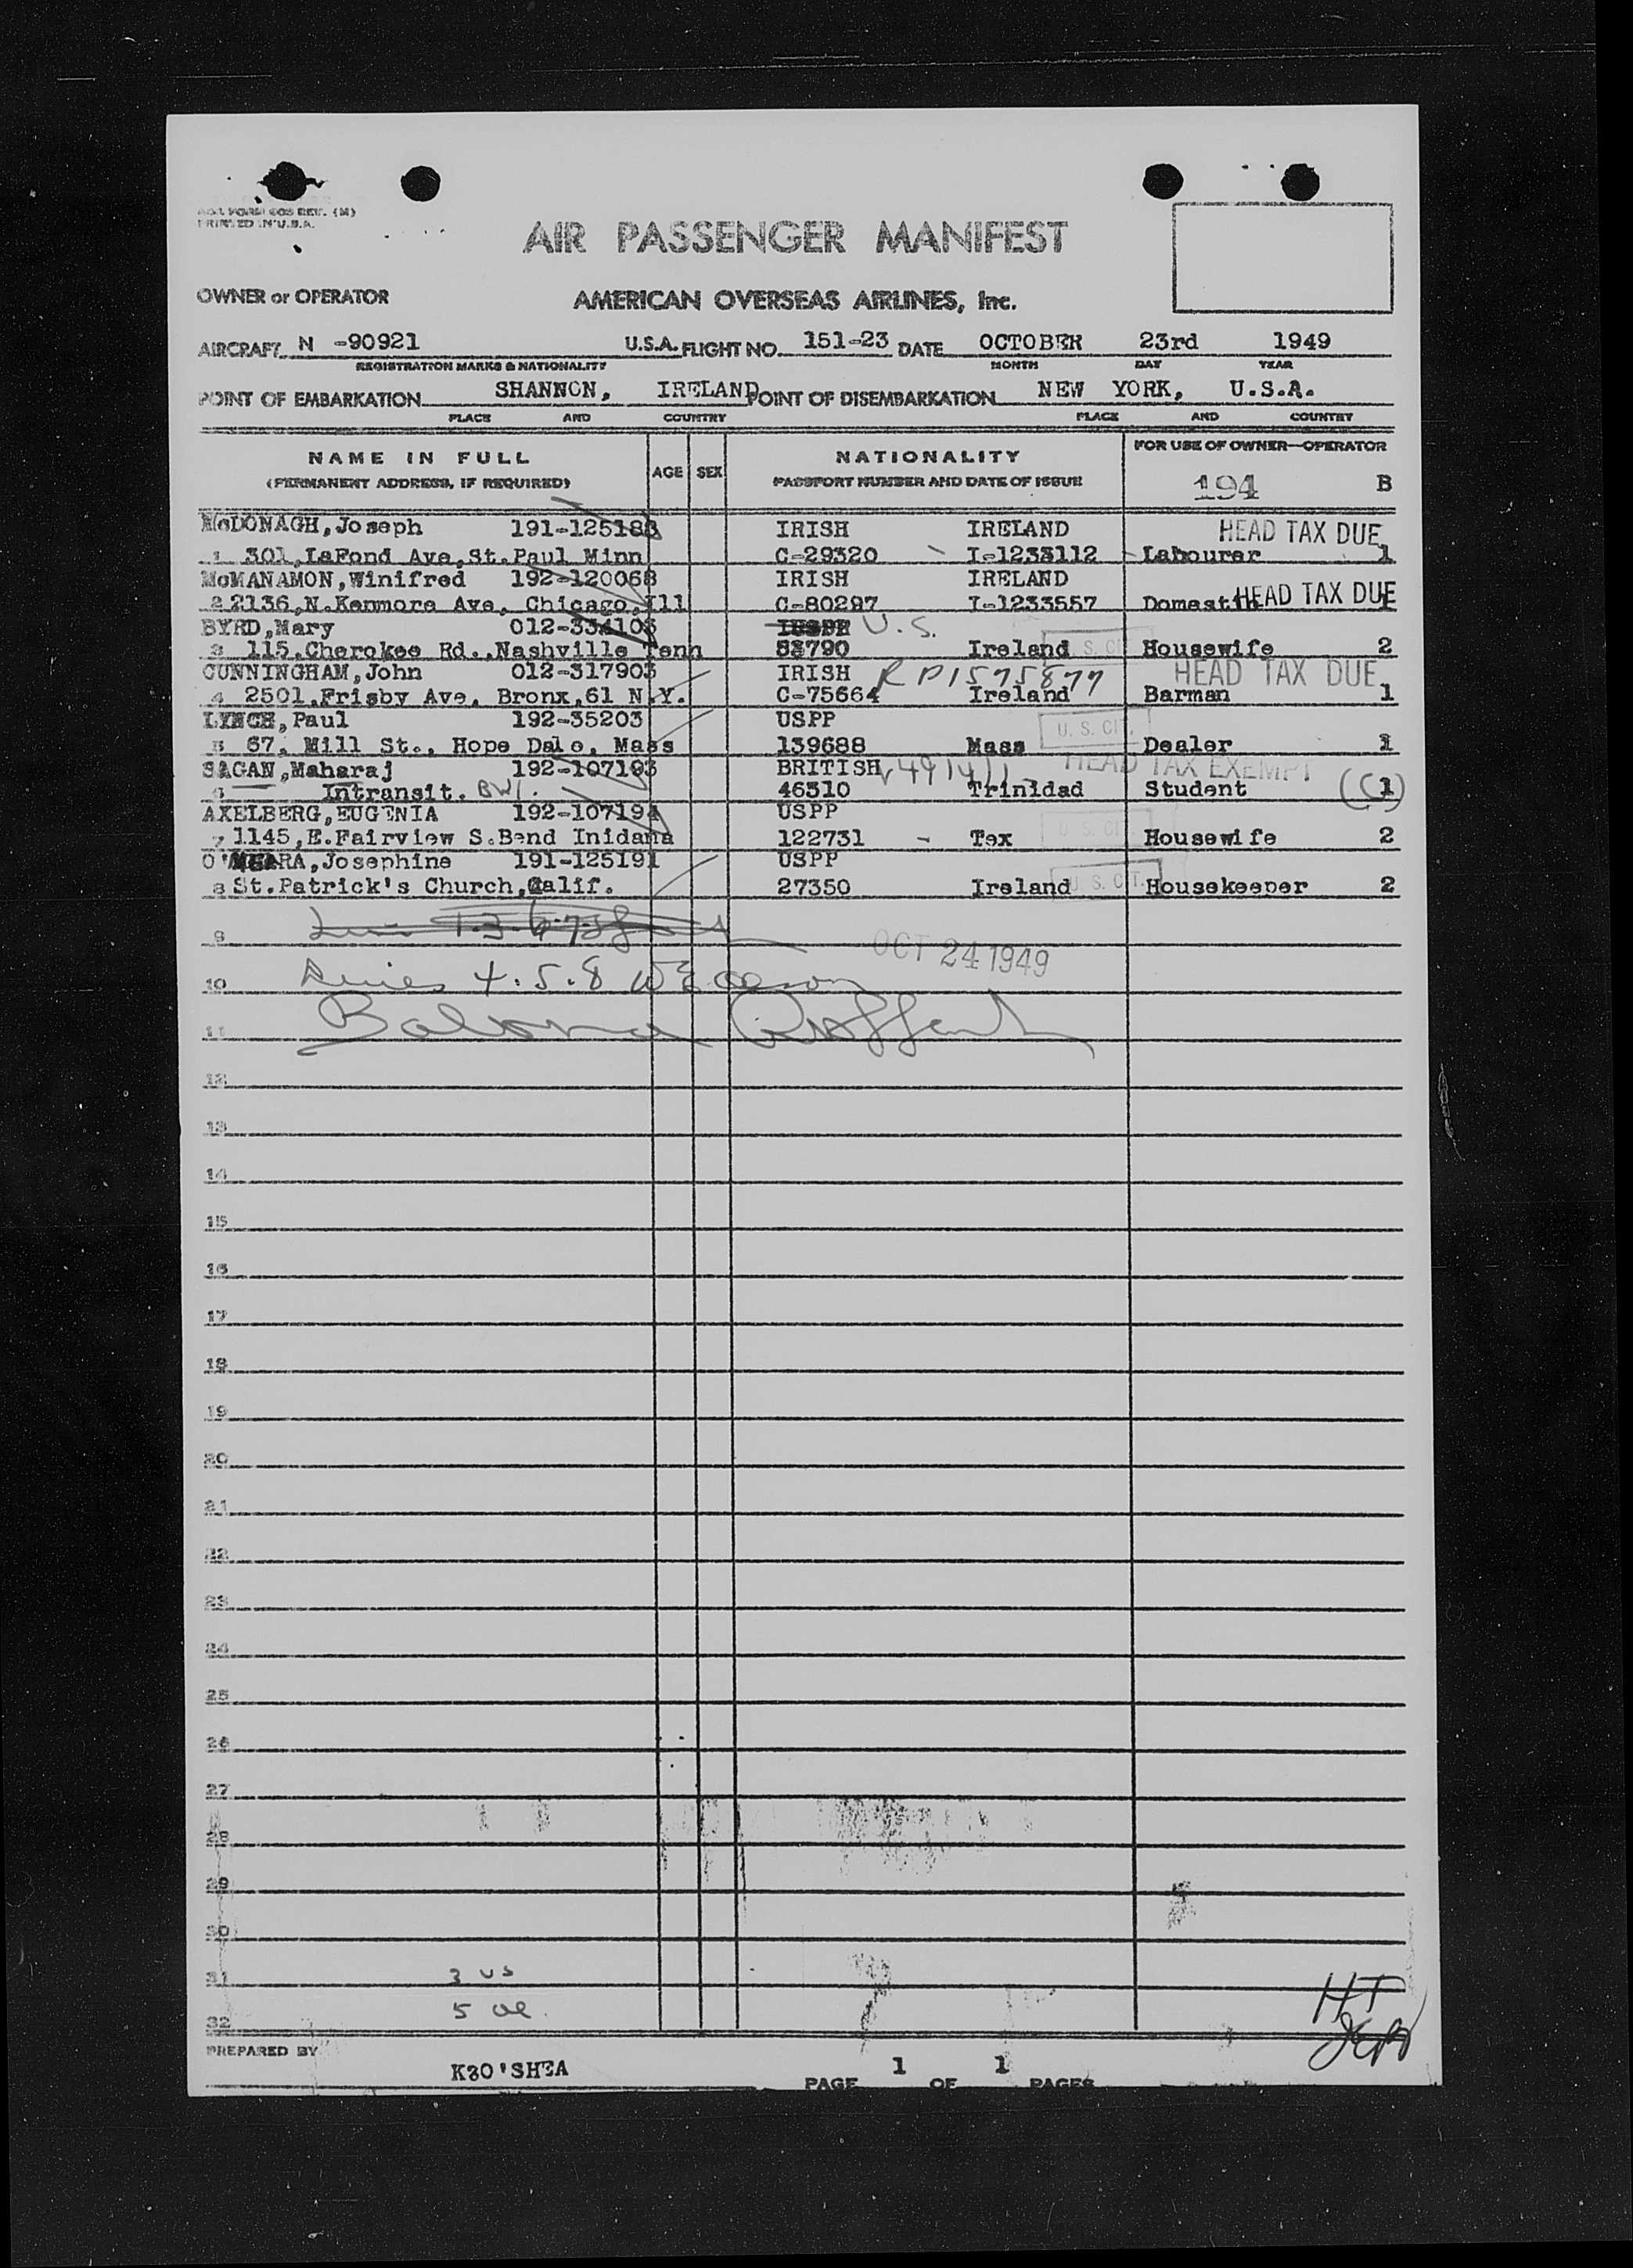 PRINTED IN U.S.A.
AIR PASSENGER MANIFEST
OWNER or OPERATOR AMERICAN OVERSEAS AIRLINES, Inc.
AIRCRAFT N -90921 U.S.A. FLIGHT NO. 151-23 DATE OCTOBER 23rd 1949
REGISTRATION MARKS & NATIONALITY MONTH DAY YEAR
POINT OF EMBARKATION SHANNON, IRELAND POINT OF DISEMBARKATION NEW YORK, U.S.A.
PLACE AND COUNTRY PLACE AND COUNTRY
NAME IN FULL AGE SEX NATIONALITY FOR USE OF OWNER—OPERATOR
(PERMANENT ADDRESS, IF REQUIRED) PASSPORT NUMBER AND DATE OF ISSUE 194 B
McDONAGH, Joseph 191-125188 IRISH IRELAND HEAD TAX DUE
1 301, LaFond Ave, St. Paul Minn C-29320 I-1233112 Labourer 1
McMANAMON, Winifred 192-120068 IRISH IRELAND HEAD TAX DUE
2 2136, N. Kenmore Ave, Chicago, Ill C-80297 I-1233557 Domestic 1
BYRD, Mary U.S.
3 115, Cherokee Rd., Nashville Tenn Ireland U.S. CIT. Housewife 2
CUNNINGHAM, John 012-317903 IRISH RP1575877 HEAD TAX DUE
4 2501, Frisby Ave, Bronx, 61 N.Y. C-75664 Ireland Barman 1
LYNCH, Paul 192-35203 USPP U. S. CIT.
5 67, Mill St., Hope Dale, Mass 139688 Mass Dealer 1
SAGAN, Maharaj 192-107193 BRITISH HEAD TAX EXEMPT
6 Intransit. BWI. 46310 Trinidad Student 1
AXELBERG, EUGENIA 192-107194 USPP
7 1145, E. Fairview S. Bend Inidana 122731 - Tex U. S. CIT. Housewife 2
O'MEARA, Josephine 191-125191 USPP
8 St. Patrick's Church, Calif. 27350 Ireland U. S. CIT. Housekeeper 2
9 OCT 24 1949
10 4. 5. 8
11
12
13
14
15
16
17
18
19
20
21
22
23
24
25
26
27
28
29
30
31 3 US
32 5 HT
PREPARED BY K8O'SHEA PAGE 1 OF 1 PAGES